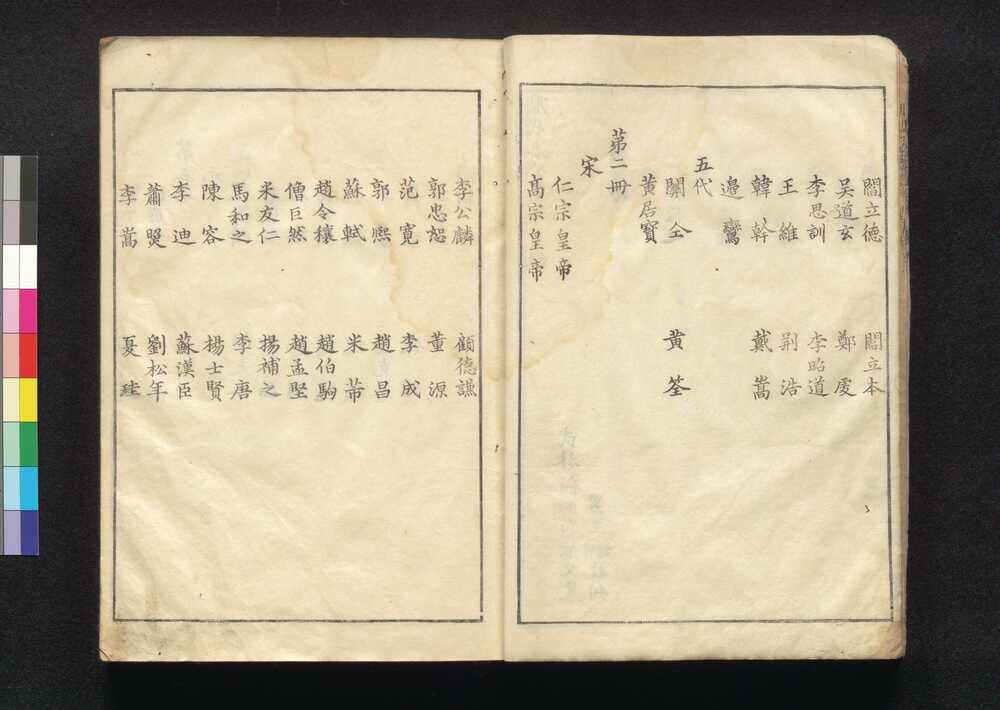 閻立德　閻立本
吳道玄　鄭虔
李思訓　李昭道
王維　荆浩
韓幹　戴嵩
邉鸞
五代
關仝　黄筌
黄居寶
第二冊
宋
仁宗皇帝
髙宗皇帝
李公麟　顧德謙
郭忠恕　董源
范寬　李成
郭熈　趙昌
蘇軾　米芾
趙令穰　趙伯駒
僧巨然　趙孟堅
米友仁　揚補之
馬和之　李唐
陳容　楊士賢
李迪　蘇漢臣
蕭照　劉松年
李嵩　夏珪